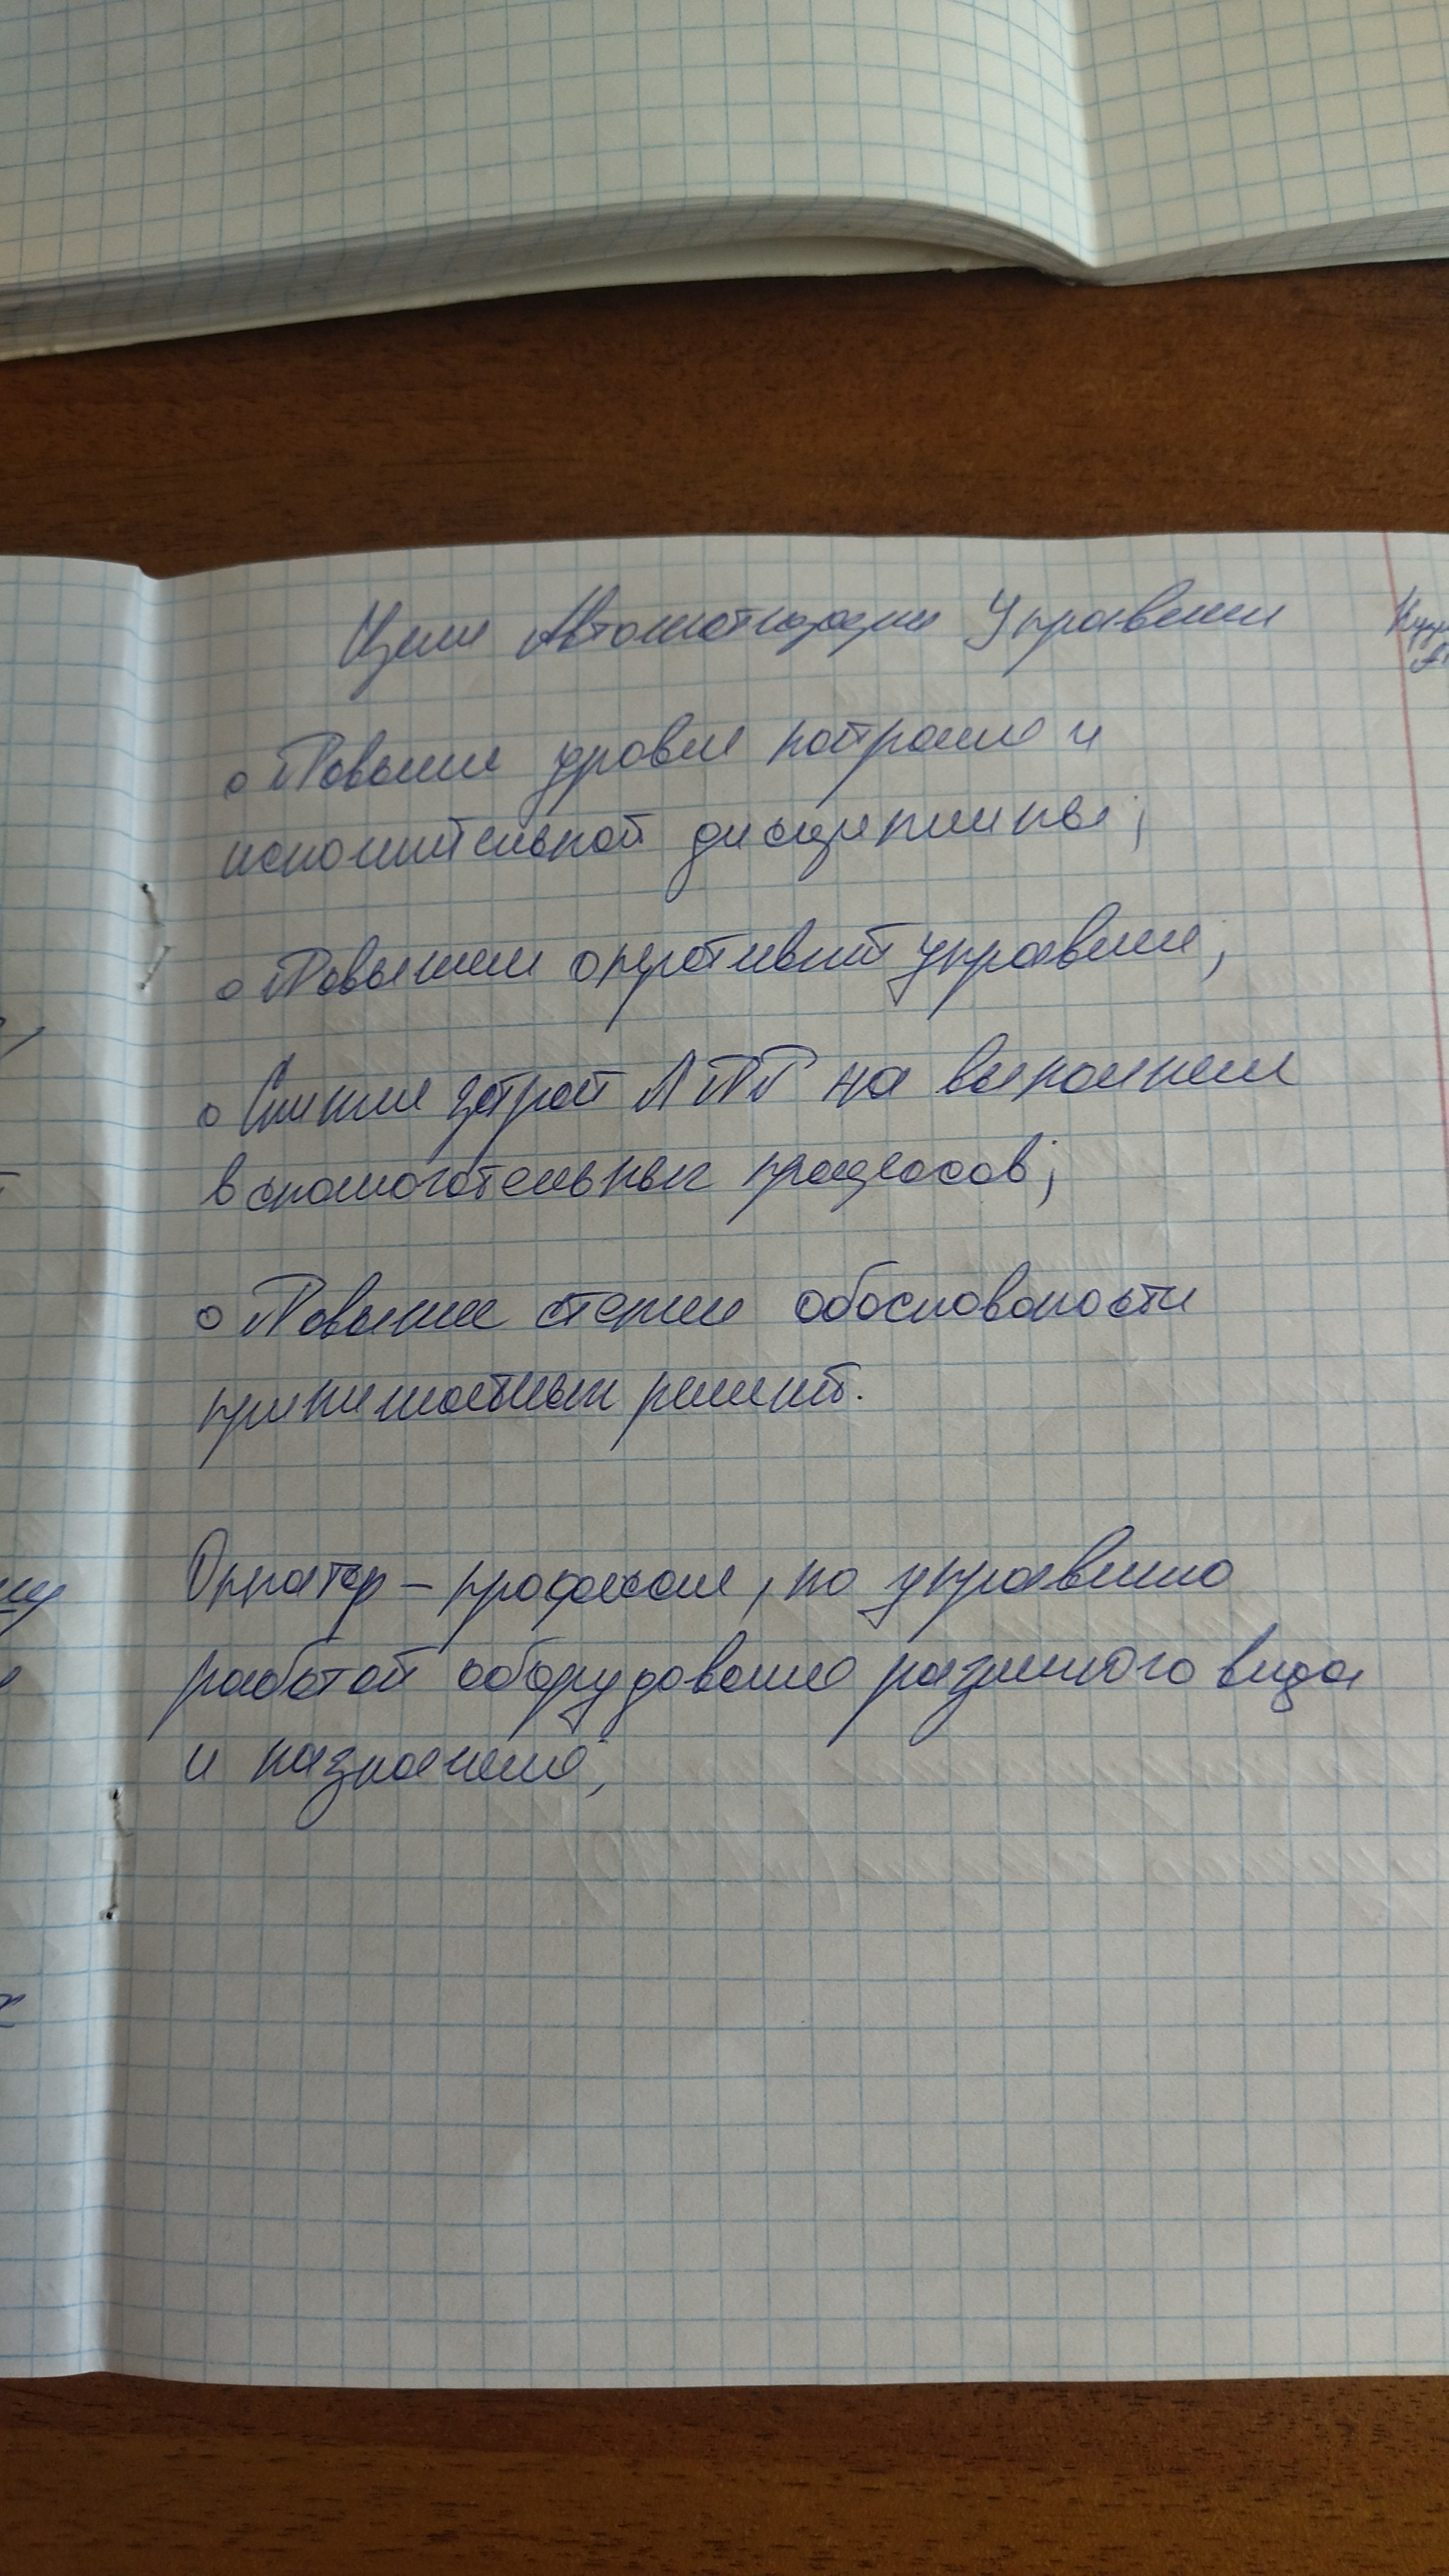 Цели Автоматизации Управлени
Повыше уровне контроле и
исполнительной дисциплины;
Повышени оперативной управлени;
Снижие затрат ЛПР на выполнени
вспомогательных процессов;
Повыние степени обоснованости
принимаемых решений.
Оператор - професси, по управлению
работой оборудование различного вида
и назначение,